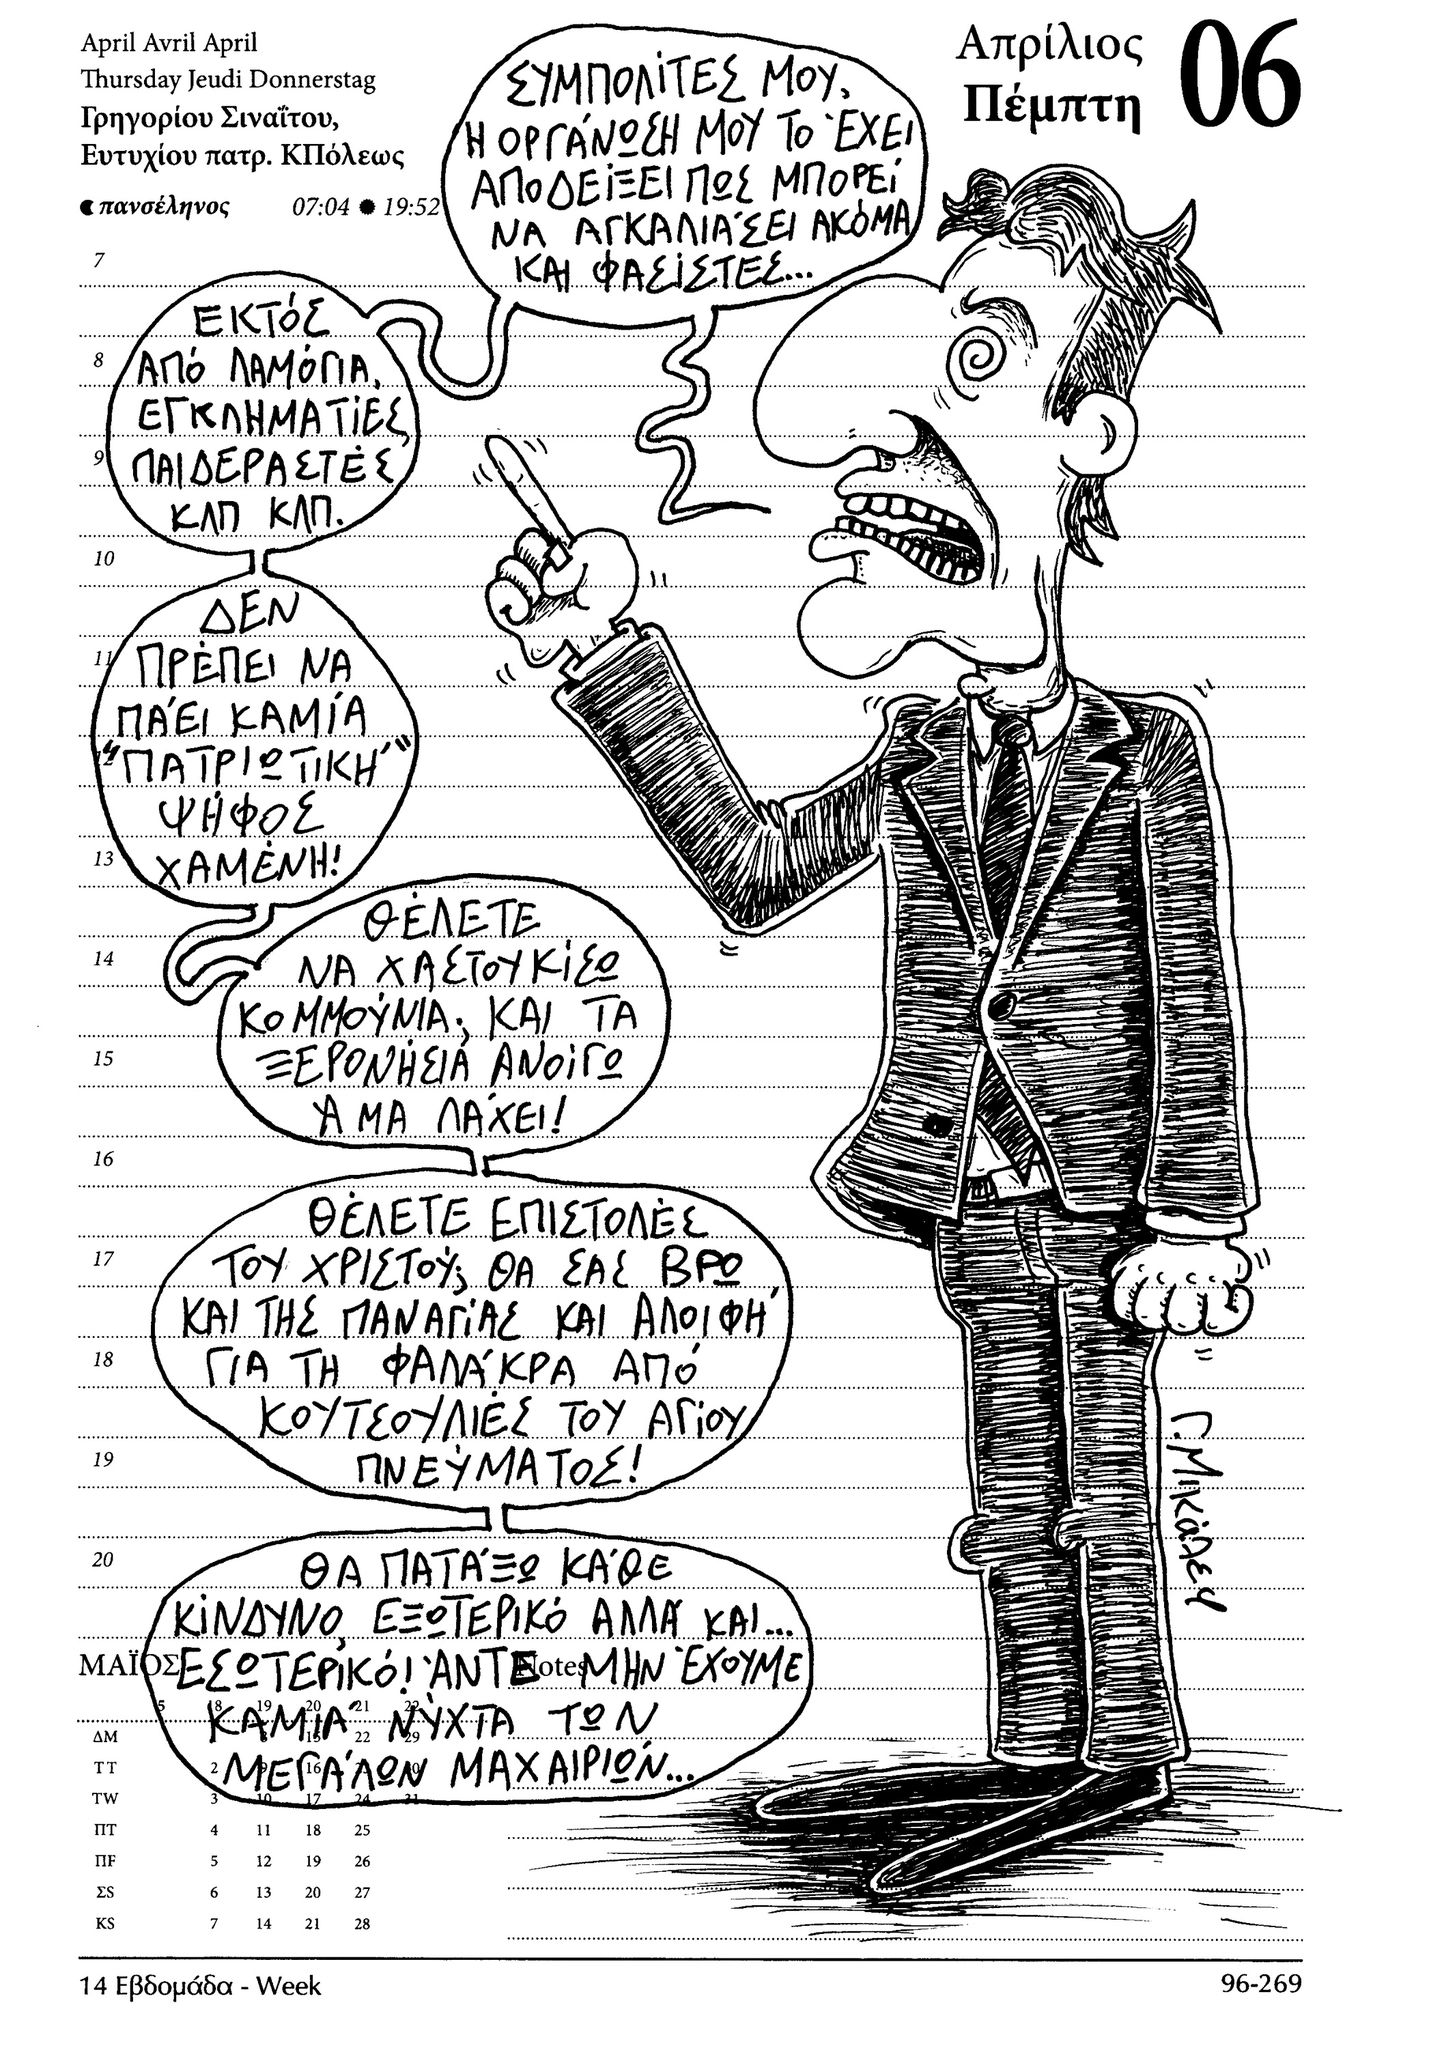 April Avril April
Thursday Jeudi Donnerstag
Γρηγορίου Σιναΐτου,
Ευτυχίου πατρ. ΚΠόλεως
πανσέληνος 07:04 19:52
Απρίλιος
Πέμπτη
06
ΣΥΜΠΟΛΙΤΕΣ ΜΟΥ,
Η ΟΡΓΆΝΩΣΗ ΜΟΥ ΤΟ ΈΧΕΙ
ΑΠΟΔΕΊΞΕΙ ΠΩΣ ΜΠΟΡΕΊ
ΝΑ ΑΓΚΑΛΙΆΣΕΙ ΑΚΌΜΑ
ΚΑΙ ΦΑΣΊΣΤΕΣ...
ΕΚΤΌΣ
ΑΠΌ ΛΑΜΌΓΙΑ,
ΕΓΚΛΗΜΑΤΊΕΣ,
ΠΑΙΔΕΡΑΣΤΈΣ
ΚΛΠ ΚΛΠ.
ΔΕΝ
ΠΡΈΠΕΙ ΝΑ
ΠΆΕΙ ΚΑΜΊΑ
"ΠΑΤΡΙΩΤΙΚΉ"
ΨΉΦΟΣ
ΧΑΜΈΝΗ!
ΘΈΛΕΤΕ
ΝΑ ΧΑΣΤΟΥΚΊΣΩ
ΚΟΜΜΟΎΝΙΑ; ΚΑΙ ΤΑ
ΞΕΡΟΝΉΣΙΑ ΑΝΟΊΓΩ
ΆΜΑ ΛΆΧΕΙ!
ΘΈΛΕΤΕ ΕΠΙΣΤΟΛΈΣ
ΤΟΥ ΧΡΙΣΤΟΎ; ΘΑ ΣΑΣ ΒΡΩ
ΚΑΙ ΤΗΣ ΠΑΝΑΓΊΑΣ ΚΑΙ ΑΛΟΙΦΉ
ΓΙΑ ΤΗ ΦΑΛΆΚΡΑ ΑΠΌ
ΚΟΥΤΣΟΥΛΙΈΣ ΤΟΥ ΑΓΊΟΥ
ΠΝΕΎΜΑΤΟΣ!
ΘΑ ΠΑΤΆΞΩ ΚΆΘΕ
ΚΊΝΔΥΝΟ, ΕΞΩΤΕΡΙΚΌ ΑΛΛΆ ΚΑΙ...
ΕΣΩΤΕΡΙΚΌ! ΆΝΤΕ ΜΗΝ ΈΧΟΥΜΕ
ΚΑΜΙΆ ΝΎΧΤΑ ΤΩΝ
ΜΕΓΆΛΩΝ ΜΑΧΑΙΡΙΏΝ...
Γ. Μικάλεφ
7
8
9
10
11
12
13
14
15
16
17
18
19
20
ΜΑΪΟΣ Notes
18 19 20 21 22
ΔΜ 15 22 29
ΤΤ 2 9 16 30
TW 3 10 17 24 31
ΠΤ 4 11 18 25
ΠF 5 12 19 26
ΣS 6 13 20 27
ΚS 7 14 21 28
14 Εβδομάδα - Week
96-269